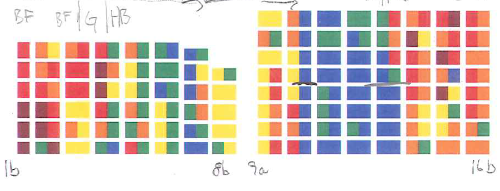 BF BF/G/HB
1b 8b 9a 16b